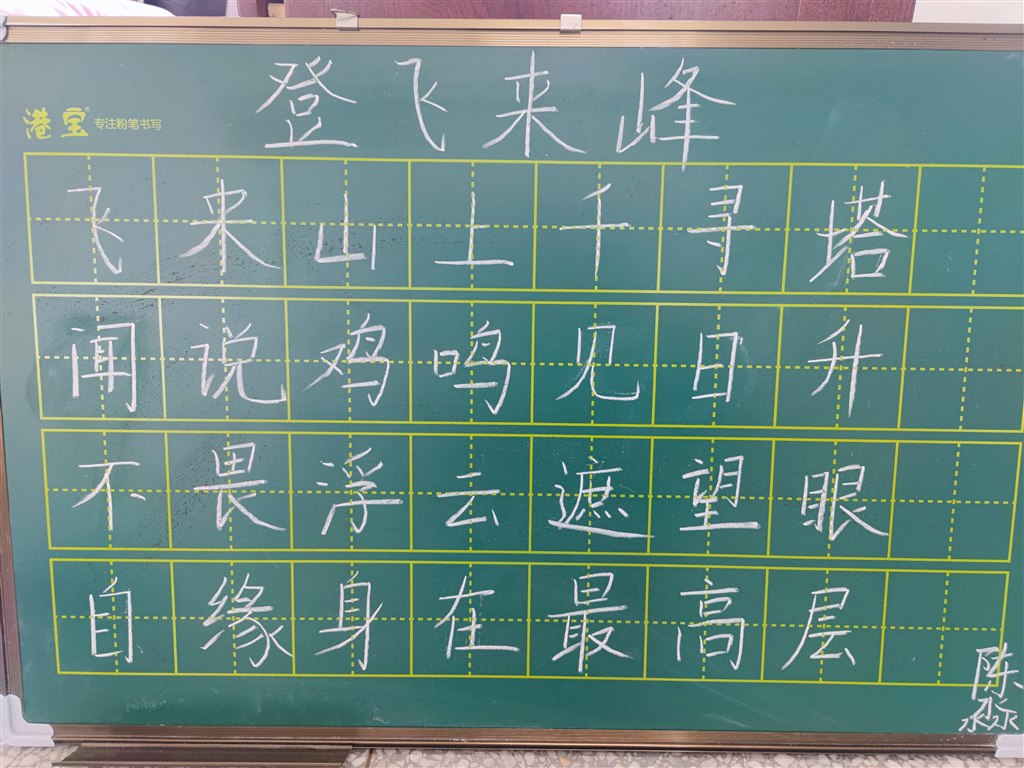 登飞来峰
港宝® 专注粉笔书写
飞来山上千寻塔
闻说鸡鸣见日升
不畏浮云遮望眼
自缘身在最高层
陈淼